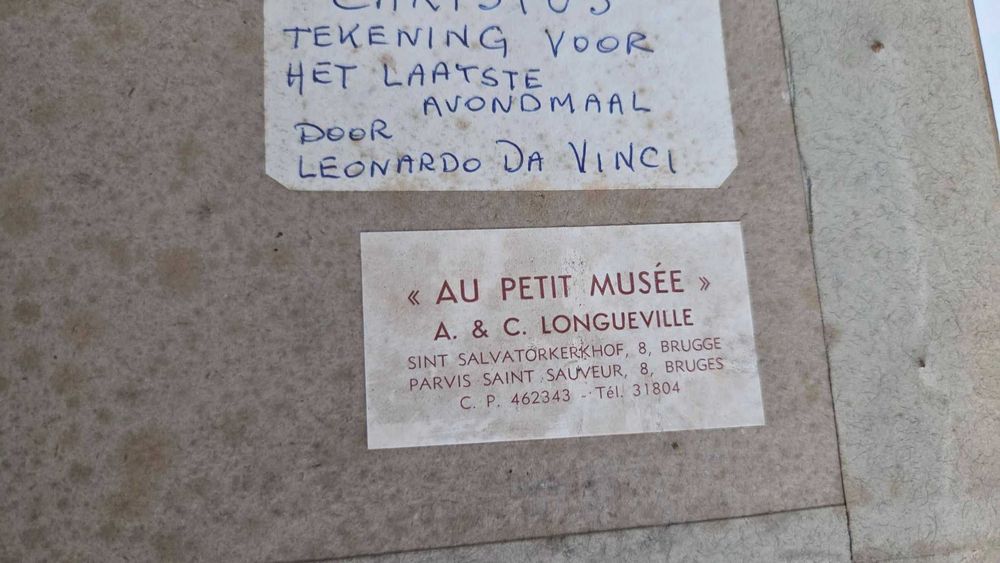 CHRISTUS
TEKENING VOOR
HET LAATSTE
AVONDMAAL
DOOR
LEONARDO DA VINCI
« AU PETIT MUSÉE »
A. & C. LONGUEVILLE
SINT SALVATORKERKHOF, 8, BRUGGE
PARVIS SAINT SAUVEUR, 8, BRUGES
C. P. 462343 - Tél. 31804